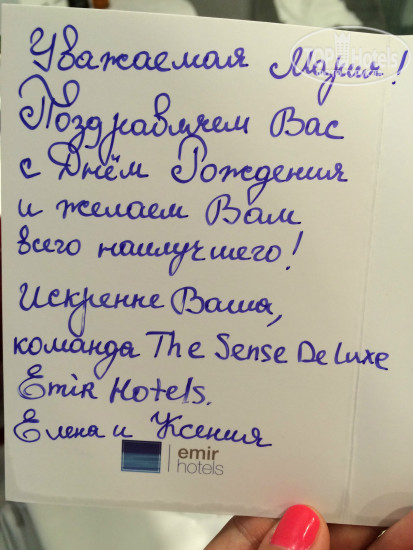 TopHotels
Уважаемая Мария!
Поздравляем Вас
с Днём Рождения
и желаем Вам
всего наилучшего!
Искренне Ваша,
команда The Sense De Luxe
Emir Hotels.
Елена и Ксения
emir
hotels